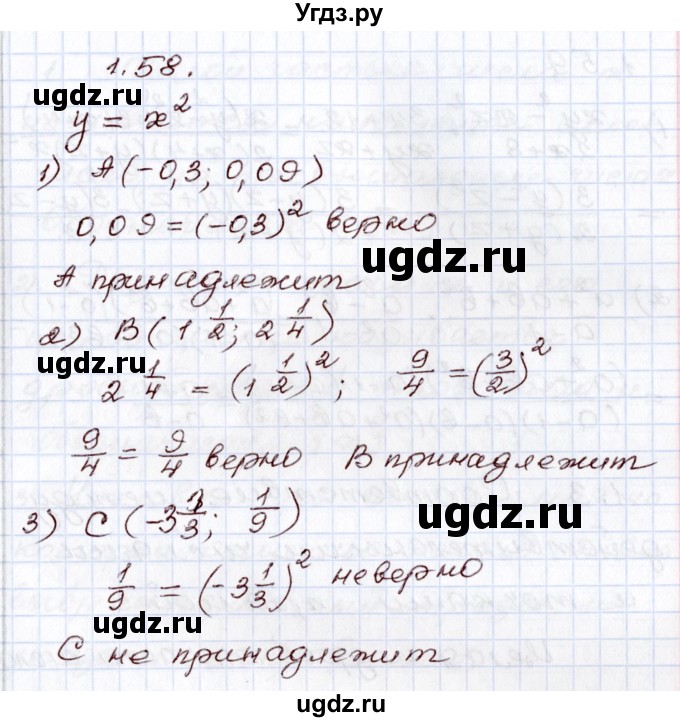 Угдз.ру
1.58.
ugdz.ru
y = x²
1) A(-0,3; 0,09)
0,09 = (-0,3)² верно
ugdz.ru
A принадлежит
2) B(1 1/2; 2 1/4)
ugdz.ru
2 1/4 = (1 1/2)²; 9/4 = (3/2)²
9/4 = 9/4 верно B принадлежит
ugdz.ru
3) C(-3 1/3; 1/9)
1/9 = (-3 1/3)² неверно
ugdz.ru
C не принадлежит
ugdz.ru